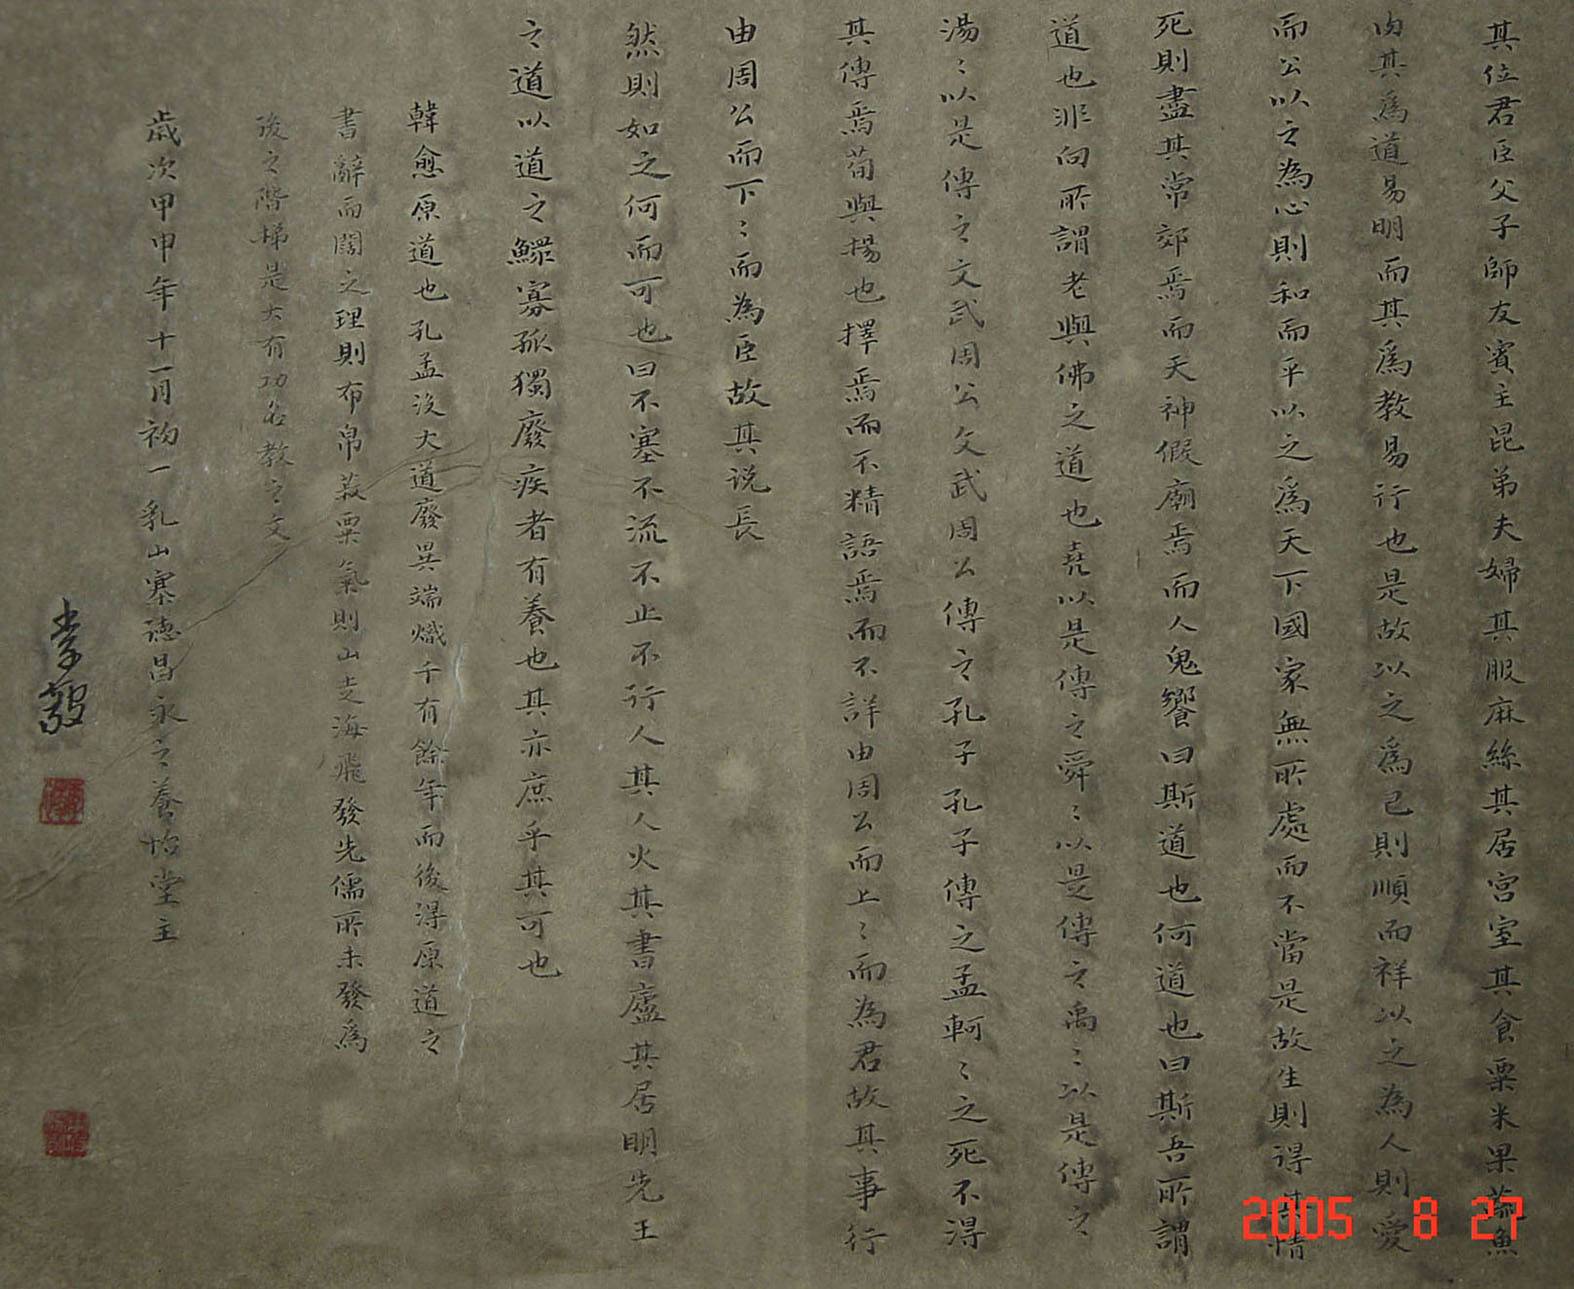 其位君臣父子師友賓主昆弟夫婦其服麻絲其居宮室其食粟米果蔬魚
肉其為道易明而其為教易行也是故以之為己則順而祥以之為人則愛
而公以之為心則和而平以之為天下國家無所處而不當是故生則得其情
死則盡其常郊焉而天神假廟焉而人鬼饗曰斯道也何道也曰斯吾所謂
道也非向所謂老與佛之道也堯以是傳之舜〻以是傳之禹〻以是傳之
湯〻以是傳之文武周公文武周公傳之孔子孔子傳之孟軻〻之死不得
其傳焉荀與揚也擇焉而不精語焉而不詳由周公而上〻而為君故其事行
由周公而下〻而為臣故其说長
然則如之何而可也曰不塞不流不止不行人其人火其書廬其居明先王
之道以道之鰥寡孤獨廢疾者有養也其亦庶乎其可也
韓愈原道也孔孟没大道廢異端熾千有餘年而後得原道之
書辭而闢之理則布帛菽粟氣則山走海飛發先儒所未發為
後之階梯是大有功名教之文
歲次甲申年十一月初一乳山寨德昌永之養怡堂主
李敬
2005 8 27